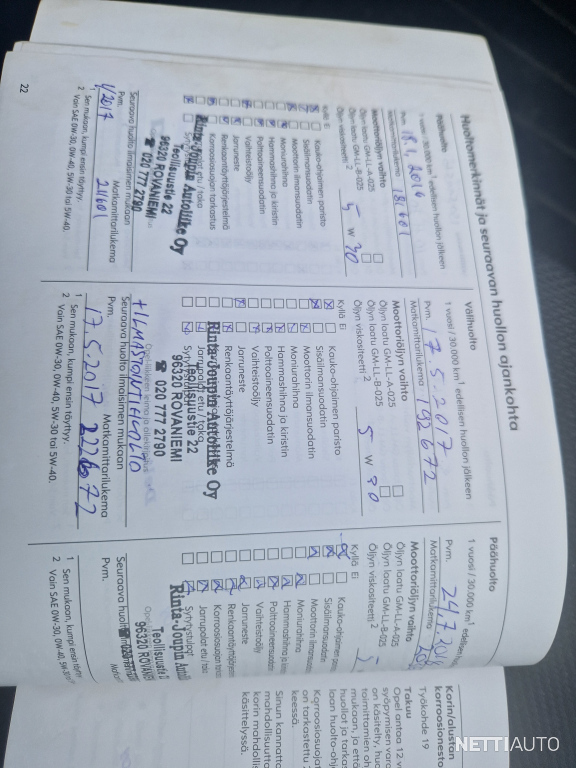 22
Huoltomerkinnät ja seuraavan huollon ajankohta
Päähuolto
1 vuosi / 30.000 km¹ edellisen huollon jälkeen
Pvm. 18.1.2016
Matkamittarilukema 181601
Moottoriöljyn vaihto
Öljyn laatu GM-LL-A-025
Öljyn laatu GM-LL-B-025
Öljyn viskositeetti² 5 W 30
Kyllä Ei
Kauko-ohjaimen paristo
Sisäilmansuodatin
Moottorin ilmansuodatin
Moniurahihna
Hammashihna ja kiristin
Polttoainesuodatin
Vaihteistoöljy
Jarruneste
Renkaantäyttöjärjestelmä
Korroosiosuojan tarkastus
Jarrupalat etu / taka
Rinta-Joupin Autoliike Oy
Teollisuustie 22
96320 ROVANIEMI
☎ 020 777 2790
Seuraava huolto ilmaisimen mukaan
Pvm. Matkamittarilukema
1/2017 211601
1 Sen mukaan, kumpi ensin täyttyy.
2 Vain SAE 0W-30, 0W-40, 5W-30 tai 5W-40.
Välihuolto
1 vuosi / 30.000 km¹ edellisen huollon jälkeen
Pvm. 17.5.2017
Matkamittarilukema 192672
Moottoriöljyn vaihto
Öljyn laatu GM-LL-A-025
Öljyn laatu GM-LL-B-025
Öljyn viskositeetti² 5 W 30
Kyllä Ei
Kauko-ohjaimen paristo
Sisäilmansuodatin
Moottorin ilmansuodatin
Moniurahihna
Hammashihna ja kiristin
Polttoainesuodatin
Vaihteistoöljy
Jarruneste
Renkaantäyttöjärjestelmä
Jarrupalat etu / taka
Rinta-Joupin Autoliike Oy
Teollisuustie 22
96320 ROVANIEMI
☎ 020 777 2790
+ILMASTOINTIHUOLTO
Seuraava huolto ilmaisimen mukaan
Pvm. Matkamittarilukema
17.5.2017
1 Sen mukaan, kumpi ensin täyttyy.
2 Vain SAE 0W-30, 0W-40, 5W-30 tai 5W-40.
Päähuolto
1 vuosi / 30.000 km¹ edellisen
Pvm. 24.7.
Matkamittarilukema
Moottoriöljyn vaihto
Öljyn laatu GM-LL-A-025
Öljyn laatu GM-LL-B-025
Öljyn viskositeetti²
Kyllä Ei
Kauko-ohjaimen
Sisäilmansuodatin
Moottorin
Moniurahihna
Hammashihna ja
Polttoainesuodatin
Vaihteistoöljy
Jarruneste
Renkaantäyttöjärjestelmä
Korroosiosuojan
Jarrupalat etu /
Sytytystulpat
Rinta-Joupin
Teollisuustie
96320
Seuraava
Pvm.
1 Sen mukaan, kumpi ensin
2 Vain SAE 0W-30, 0W-40, 5W-30
Korin/alustan
korroosionesto
Työkohde 19
Takuu
Opel antaa 12
syöpymisen
on käsitelty,
toimittamien
mukaan, ja että
huollot ja
laan huolto-ohj
Korroosiosuoja
on tarkastettu
keessä.
Sinun kannatta
mahdollisuutta
korin mahdolli
käsittelyssä.
NETTIAUTO